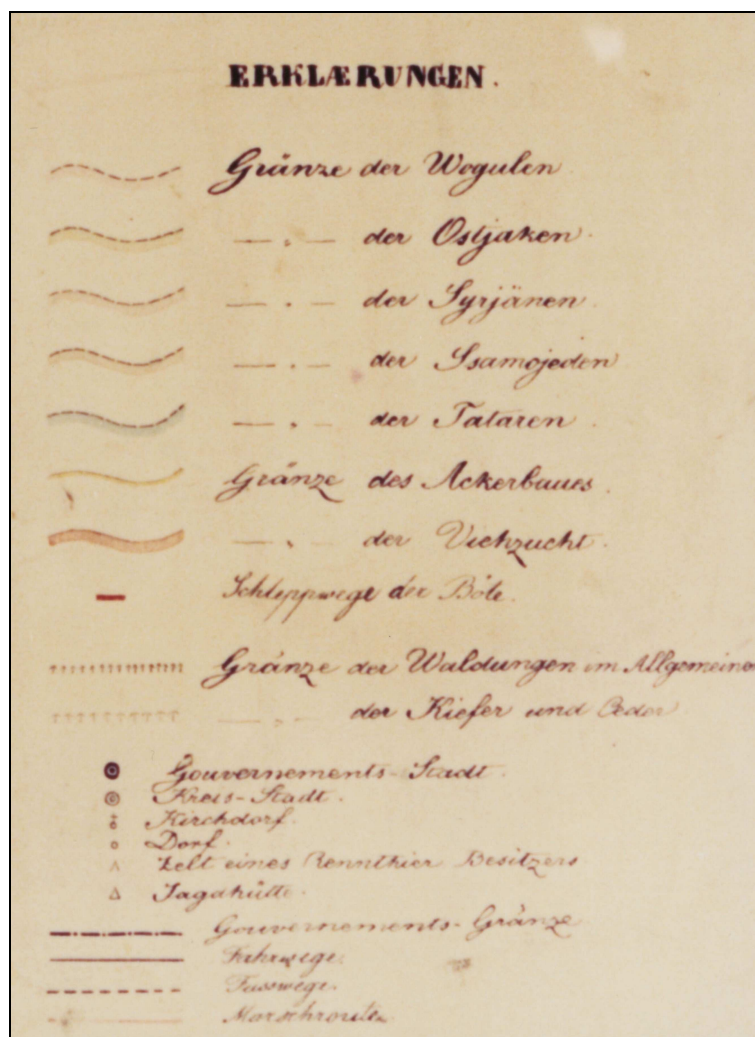 ERKLÆRUNGEN.
Gränze der Wogulen
— „ — der Ostjaken.
— „ — der Syrjänen.
— „ — der Ssamojeden
— „ — der Tataren.
Gränze des Ackerbaues.
— „ — der Viehzucht.
Schleppwege der Böte.
Gränze der Waldungen im Allgemeinen
— „ — der Kiefer und Ceder
Gouvernements-Stadt.
Kreis-Stadt.
Kirchdorf.
Dorf.
Zelt eines Rennthier Besitzers
Jagdhütte.
Gouvernements-Gränze
Fahrwege.
Fusswege.
Marschroute.